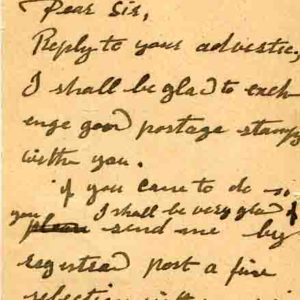 Dear Sir,
Reply to your advertise,
I shall be glad to exch-
enge good postage stamps
with you.
If you care to do so
you I shall be very glad if
send me by
registread post a fine
selection with